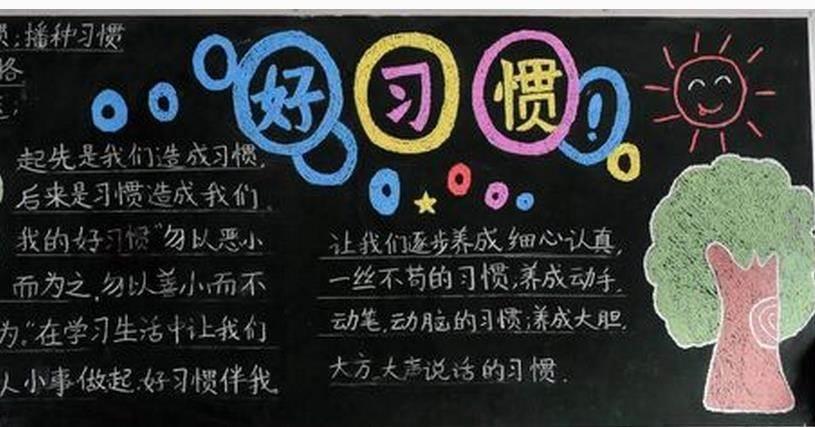 好习惯!
惯;播种习惯
格
起先是我们造成习惯,
后来是习惯造成我们.
我的好习惯"勿以恶小
而为之,勿以善小而不
为."在学习生活中让我们
从小事做起.好习惯伴我
让我们逐步养成,细心认真,
一丝不苟的习惯;养成动手,
动笔,动脑的习惯;养成大胆,
大方,大声说话的习惯.